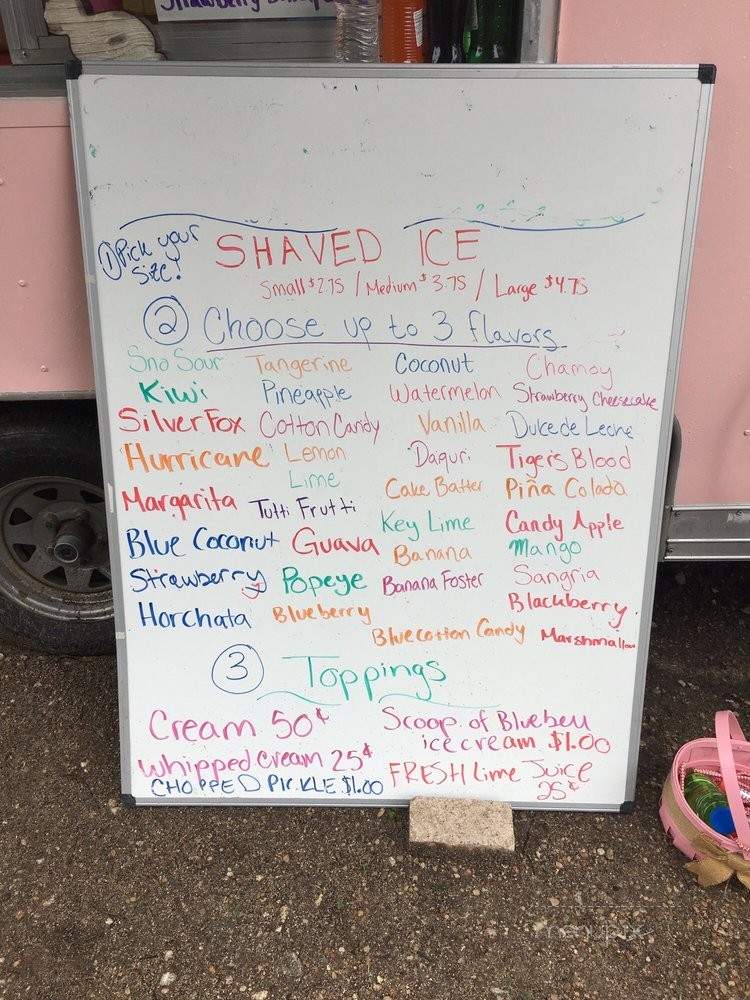 ① Pick your
Size!
SHAVED ICE
Small $2.75 / Medium $3.75 / Large $4.75
② Choose up to 3 flavors
Sno Sour Tangerine Coconut Chamoy
Kiwi Pineapple Watermelon Strawberry Cheesecake
Silver Fox Cotton Candy Vanilla Dulce de Leche
Hurricane Lemon Daquri Tiger's Blood
Lime Cake Batter Piña Colada
Margarita Tutti Frutti Key Lime Candy Apple
Blue Coconut Guava Banana Mango
Strawberry Popeye Banana Foster Sangria
Horchata Blueberry Blackberry
Blue cotton Candy Marshmallow
③ Toppings
Cream 50¢ Scoop of Bluebell
ice cream $1.00
Whipped Cream 25¢ FRESH Lime Juice
CHOPPED PICKLE $1.00 25¢
menupix